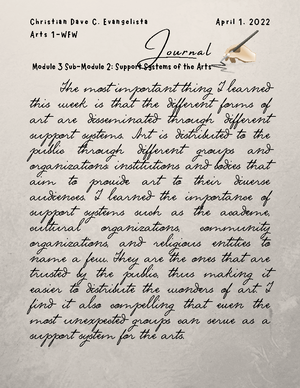 Christian Dave C. Evangelista April 1, 2022
Arts 1-WFW
Journal
Module 3 Sub-Module 2: Support Systems of the Arts
The most important thing I learned
this week is that the different forms of
art are disseminated through different
support systems. Art is distributed to the
public through different groups and
organizations institutions and bodies that
aim to provide art to their diverse
audiences. I learned the importance of
support systems such as the academe,
cultural organizations, community
organizations, and religious entities to
name a few. They are the ones that are
trusted by the public, thus making it
easier to distribute the wonders of art. I
find it also compelling that even the
most unexpected groups can serve as a
support system for the arts.